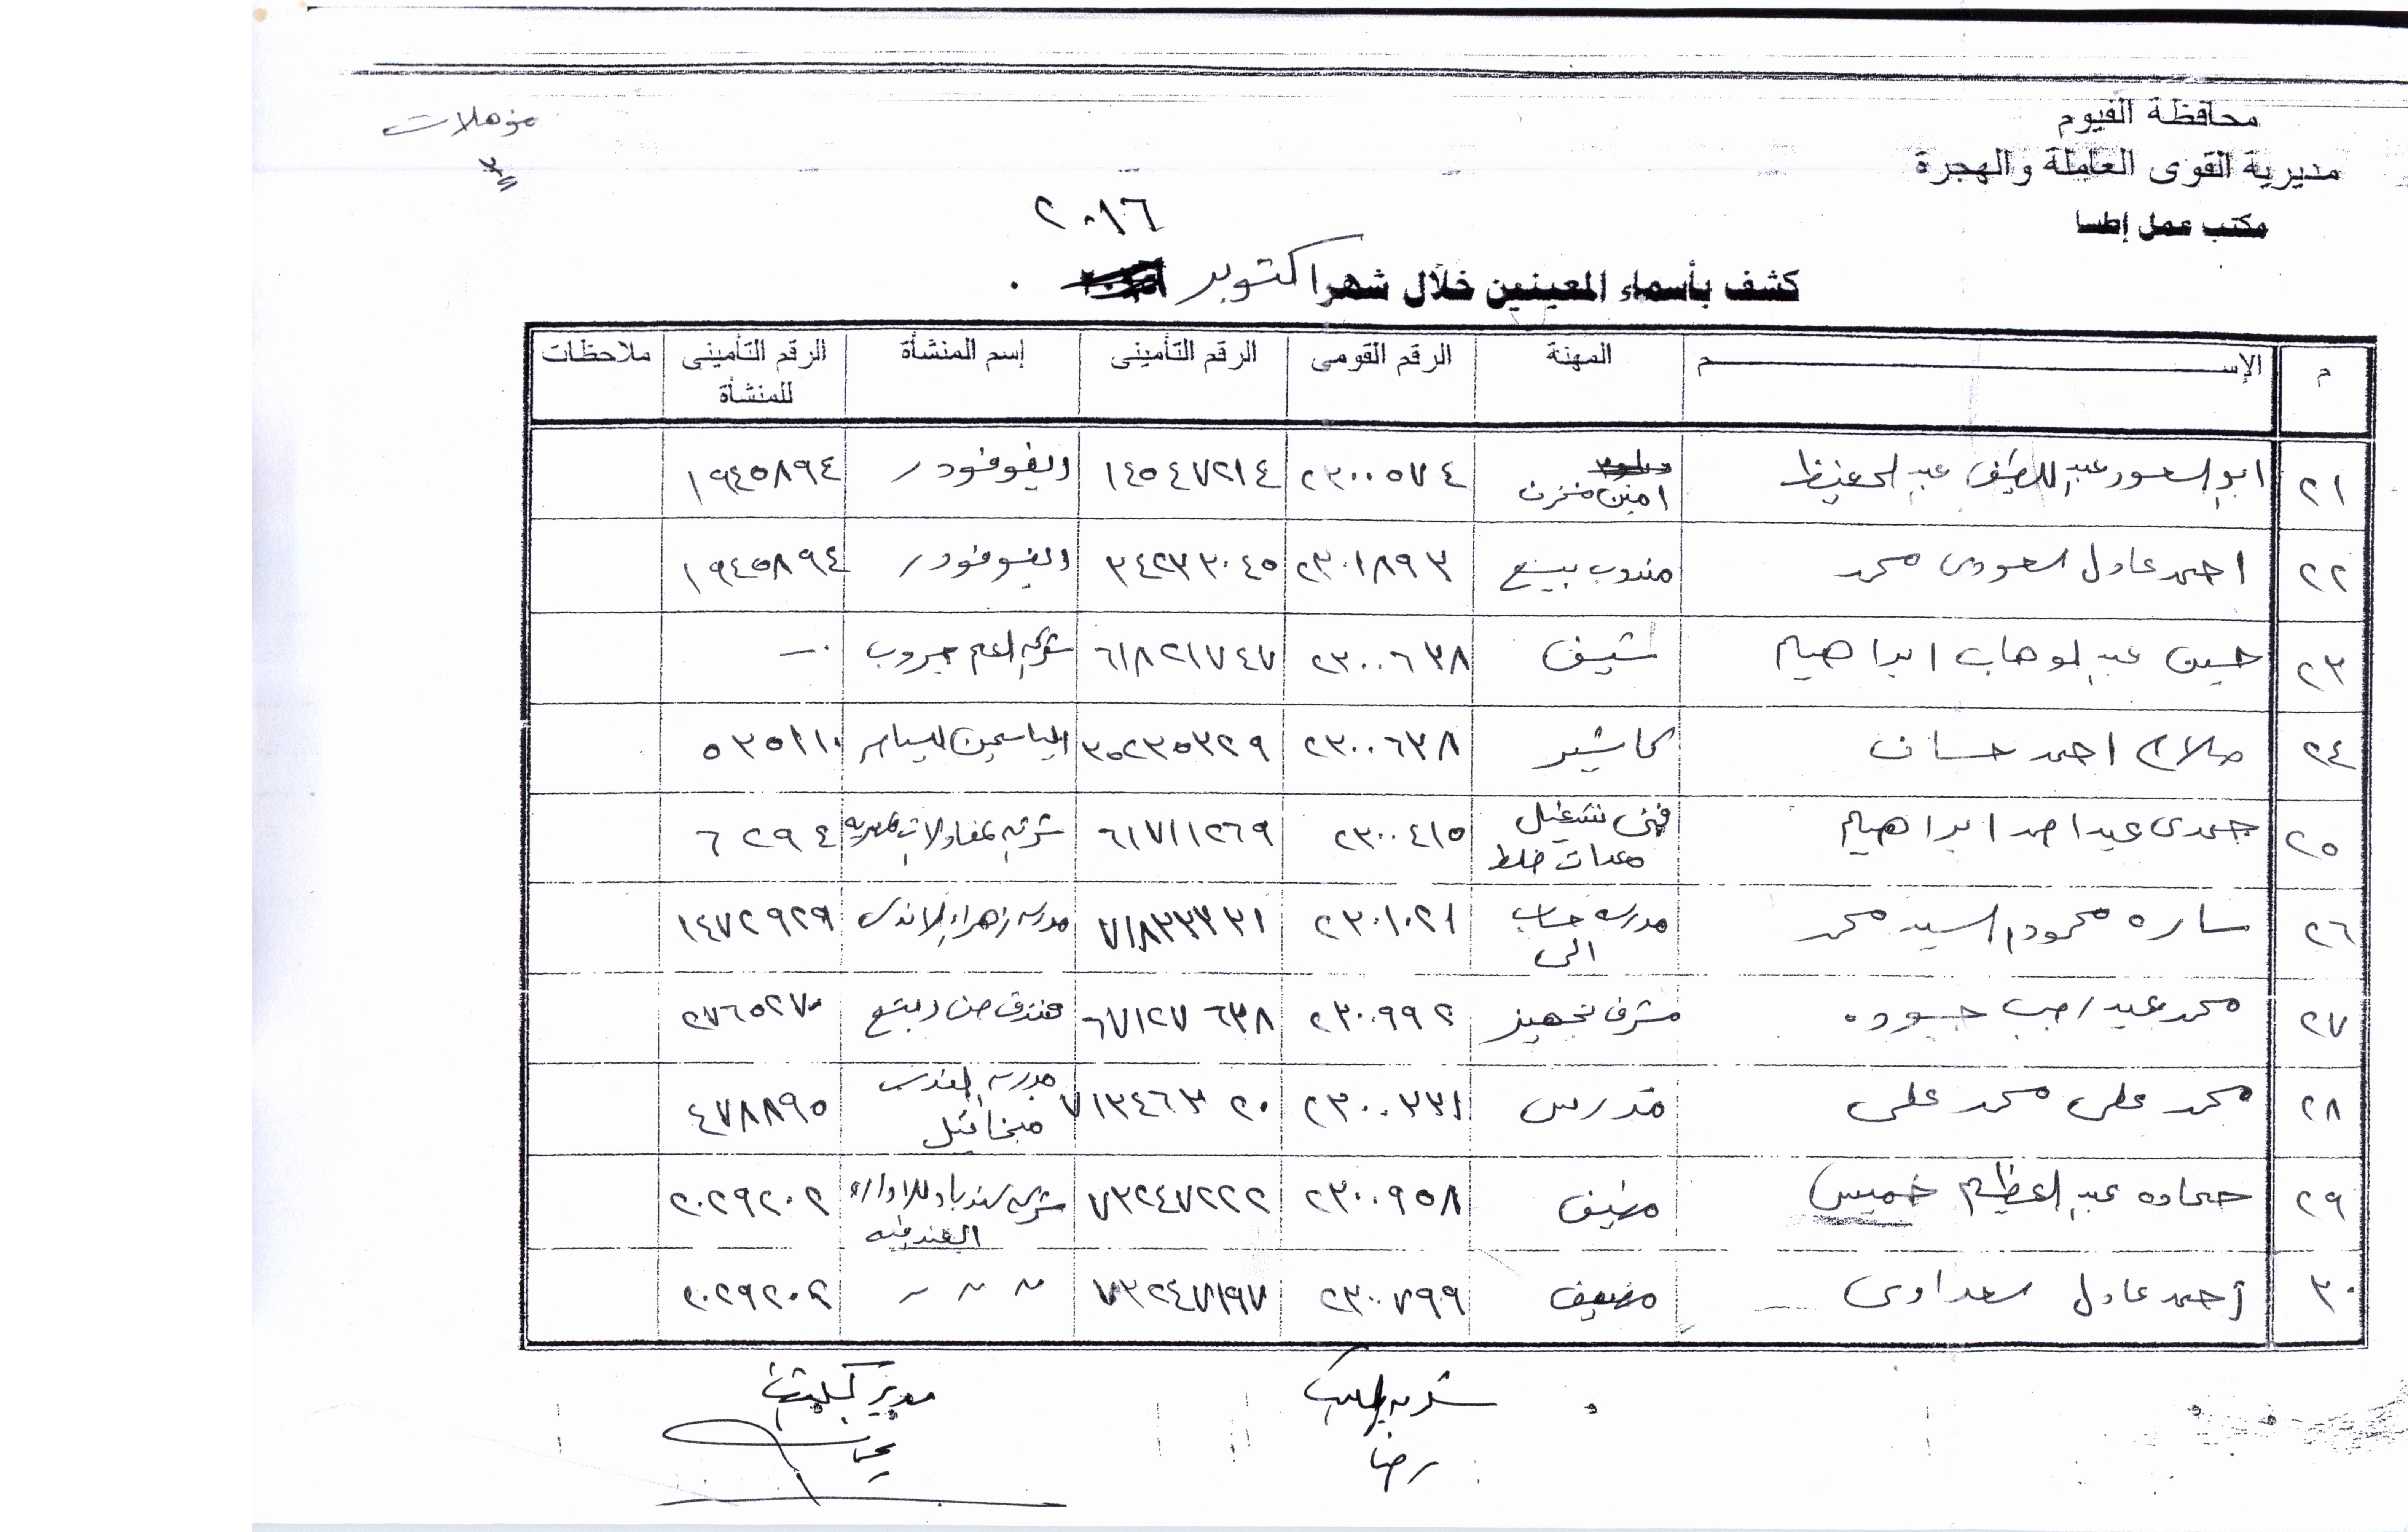 محافظة الفيوم
مديرية القوى العاملة والهجرة
مكتب عمل إطسا
مؤهلات
٢٠١٦
كشف بأسماء المعينين خلال شهر اكتوبر
م الإســــم المهنة الرقم القومى الرقم التأمينى إسم المنشأة الرقم التأمينى للمنشأة ملاحظات
٢١ ابو السعود عبد اللطيف عبد الحفيظ امين مخزن ٢٣٠٠٥٧٤ ١٤٥٤٧٢١٤ ١٩٤٥٨٩٤
٢٢ احمد عادل السعودى محمد مندوب بيع ٢٣٠١٨٩٣ ٣٤٢٣٣٠٤٥ ١٩٤٥٨٩٤
٢٣ حسين عبد الوهاب ابراهيم شيف ٢٣٠٠٦٣٨ ٦١٨٢١٧٤٧ شركه جروب
٢٤ صلاح احمد حسان كاشير ٢٣٠٠٦٣٨ ٣٥٢٣٥٣٢٩ الياسمين ٥٣٥١١٠
٢٥ حمدى عيد احمد ابراهيم فنى تشغيل معدات خلط ٢٣٠٠٤١٥ ٦١٧١١٢٦٩ شركه المقاولات المصريه ٦٢٩٤
٢٦ ساره محمود السيد محمد مدرسه حاسب الى ٢٣٠١٠٢١ ٧١٨٣٣٣٣١ مدرسه زهراء الاندلس ١٤٧٢٩٢٩
٢٧ محمد عيد رجب حموده مشرف تجهيز ٢٣٠٠٩٩٢ ٦٧١٢٧٦٣٨ فندق ٢٧٦٥٢٧٠
٢٨ محمد على محمد على مدرس ٢٣٠٠٣٣١ ٧١٣٤٦٣٢٠ مدرسه القديس ميخائيل ٤٧٨٨٩٥
٢٩ حماده عبد العظيم خميس مضيف ٢٣٠٠٩٥٨ ٧٣٢٤٧٢٢٢ شركه سندباد للاداره الفندقيه ٢٠٢٩٢٠٢
٣٠ احمد عادل سعداوى مضيف ٢٣٠٠٧٩٩ ٧٣٢٤٧١٩٧ ٢٠٢٩٢٠٢
مدير
رضا